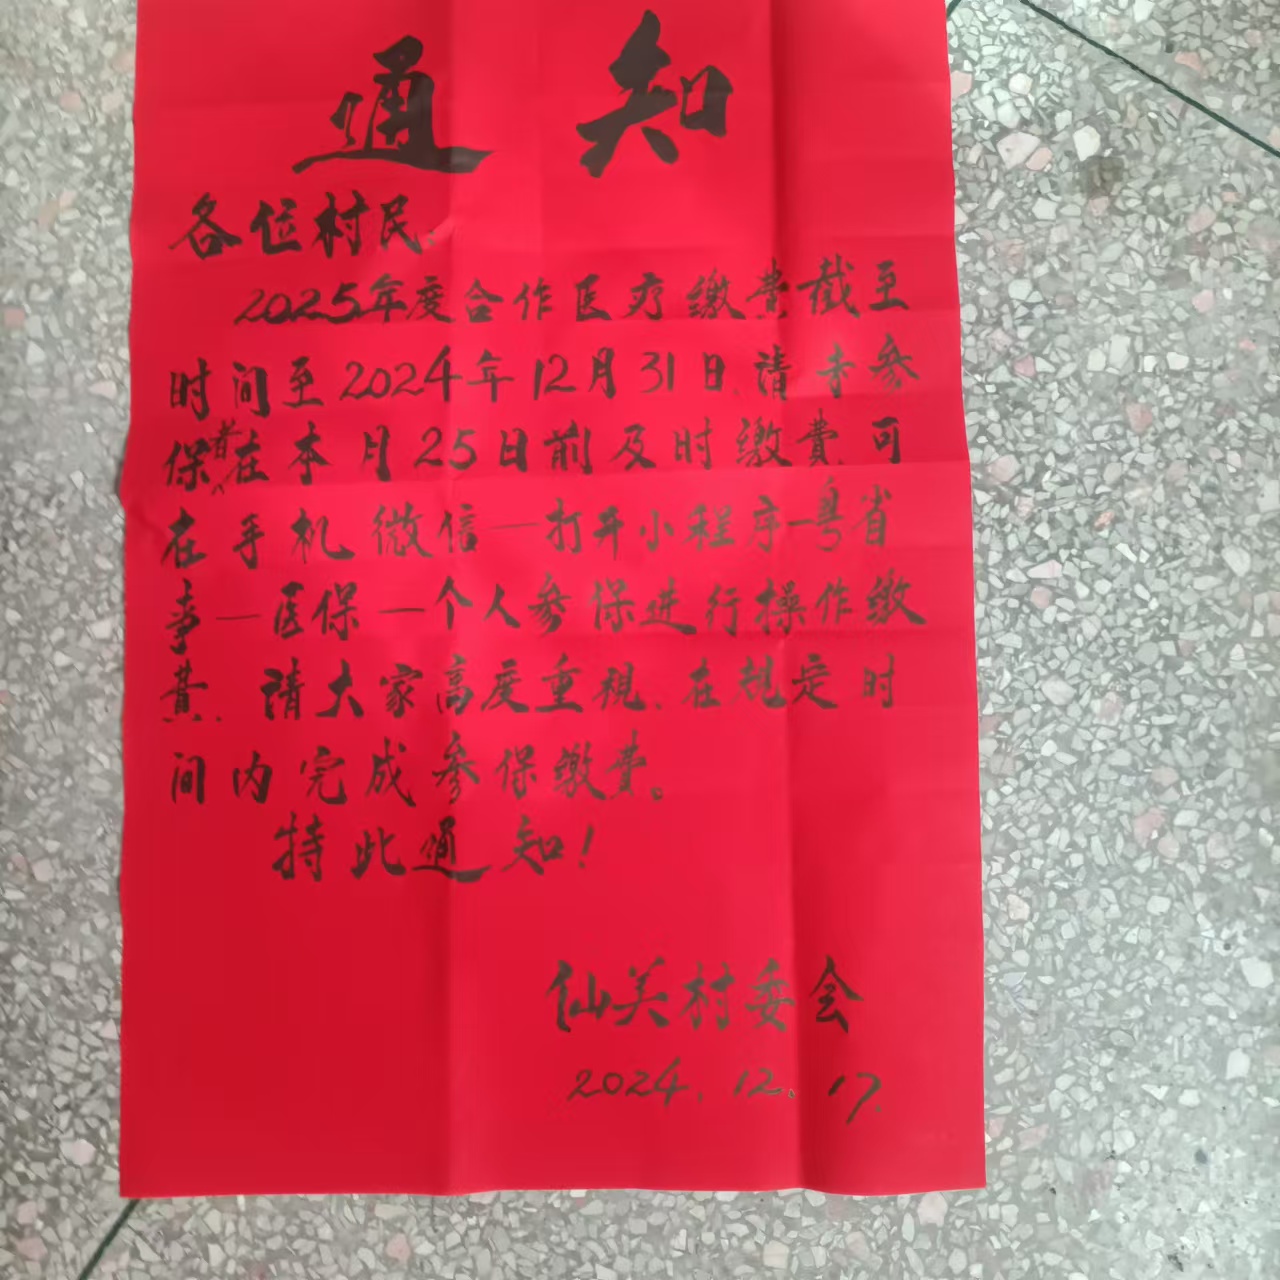 通知
各位村民、
2025年度合作医疗缴费截至
时间至2024年12月31日、请未参
保者在本月25日前及时缴费、可
在手机微信—打开小程序—粤省
事—医保—个人参保进行操作缴
费、请大家高度重視、在规定时
间内完成参保缴费。
特此通知!
仙美村委会
2024.12.17.